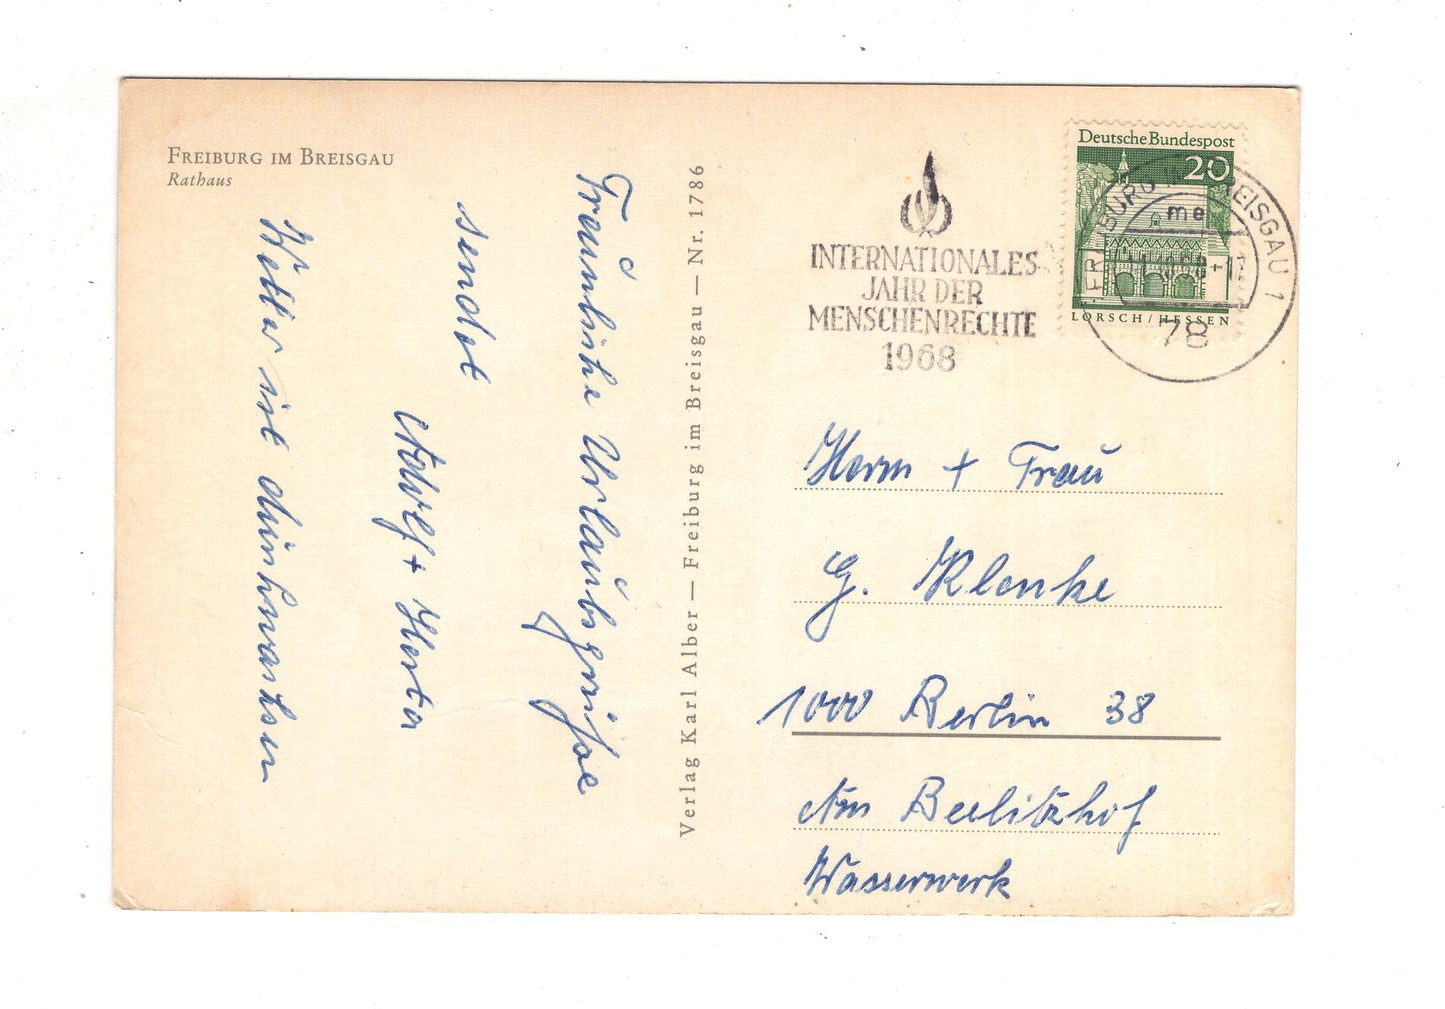 FREIBURG IM BREISGAU
Rathaus
Freundliche Urlaubsgrüße
sendet
Adolf + Herta
Wetter ist durchwachsen
Verlag Karl Alber — Freiburg im Breisgau — Nr. 1786
INTERNATIONALES
JAHR DER
MENSCHENRECHTE
1968
Deutsche Bundespost
20
LORSCH/HESSEN
FREIBURG IM BREISGAU 1
me
78
Herrn + Frau
G. Klenke
1000 Berlin 38
Am Beelitzhof
Wasserwerk